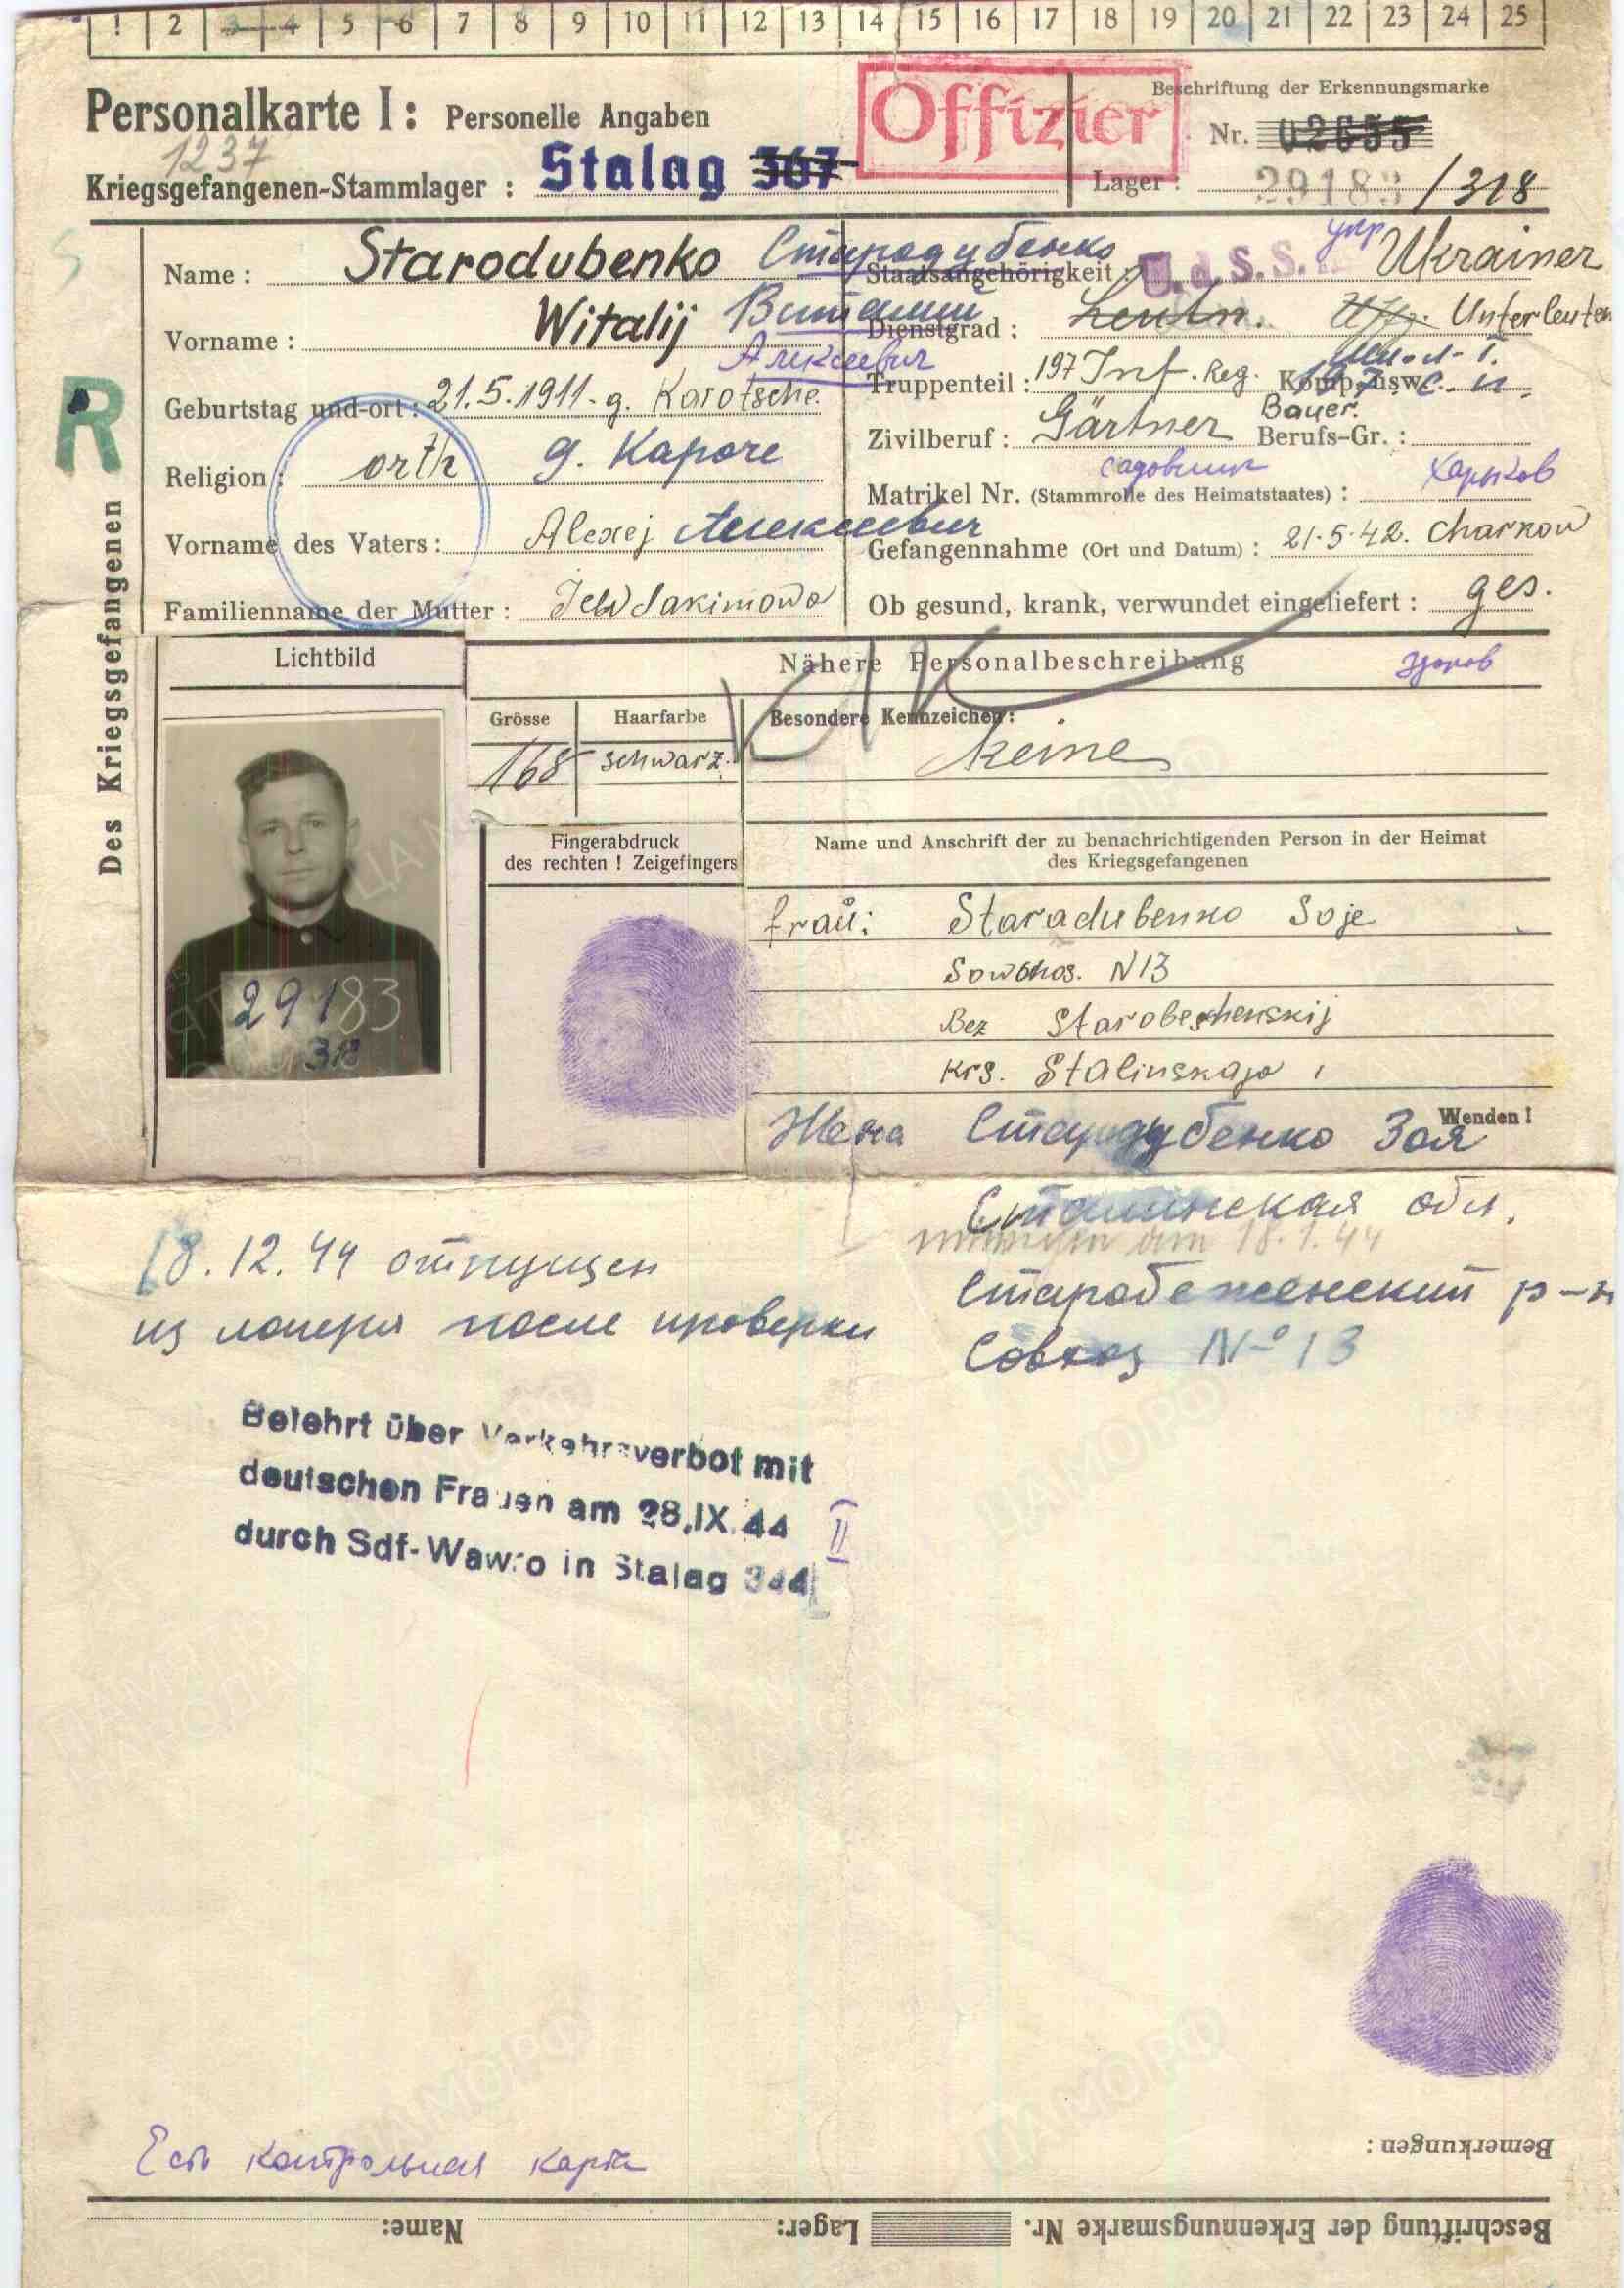 1 2 3 4 5 6 7 8 9 10 11 12 13 14 15 16 17 18 19 20 21 22 23 24 25
Personalkarte I: Personelle Angaben
1237
Kriegsgefangenen-Stammlager: Stalag 367
Offizier
Beschriftung der Erkennungsmarke
Nr. 02655
Lager: 29183/318
Des Kriegsgefangenen
R
Name: Starodubenko Стародубенко
Vorname: Witalij Виталий
Алексеевич
Geburtstag und-ort: 21.5.1911-g. Karotsche.
Religion: orth г. Кароче
Vorname des Vaters: Alexej Алексеевич
Familienname der Mutter: Jewdakimowa
Staatsangehörigkeit: U.d.S.S. укр Ukrainer
Dienstgrad: Leutn. Uffz. Unterleuten
мл. л-т.
Truppenteil: 197 Inf. Reg. Komp. usw.: 197 с. п.
Zivilberuf: Gärtner Berufs-Gr.: Bauer.
садовник
Matrikel Nr. (Stammrolle des Heimatstaates): Харьков
Gefangennahme (Ort und Datum): 21.5.42. Charkow
Ob gesund, krank, verwundet eingeliefert: ges.
здоров
Lichtbild
Nähere Personalbeschreibung
Grösse Haarfarbe Besondere Kennzeichen:
168 schwarz. keine
Fingerabdruck
des rechten ! Zeigefingers
Name und Anschrift der zu benachrichtigenden Person in der Heimat
des Kriegsgefangenen
29183
318
frau: Staradubenko Soje
Sowchos. N13
Bez Starobeschenskij
Krs. Stalinskaja
Wenden!
Жена Стародубенко Зоя
Сталинская обл.
am 18.1.44
Старобешенский р-н
Совхоз №13
18.12.44 отпущен
из лагеря после проверки
Belehrt über Verkehrsverbot mit
deutschen Frauen am 28.IX.44
durch Sdf-Wawro in Stalag 344
II
Bemerkungen:
Есть контрольная карта
Beschriftung der Erkennungsmarke Nr. Lager: Name: